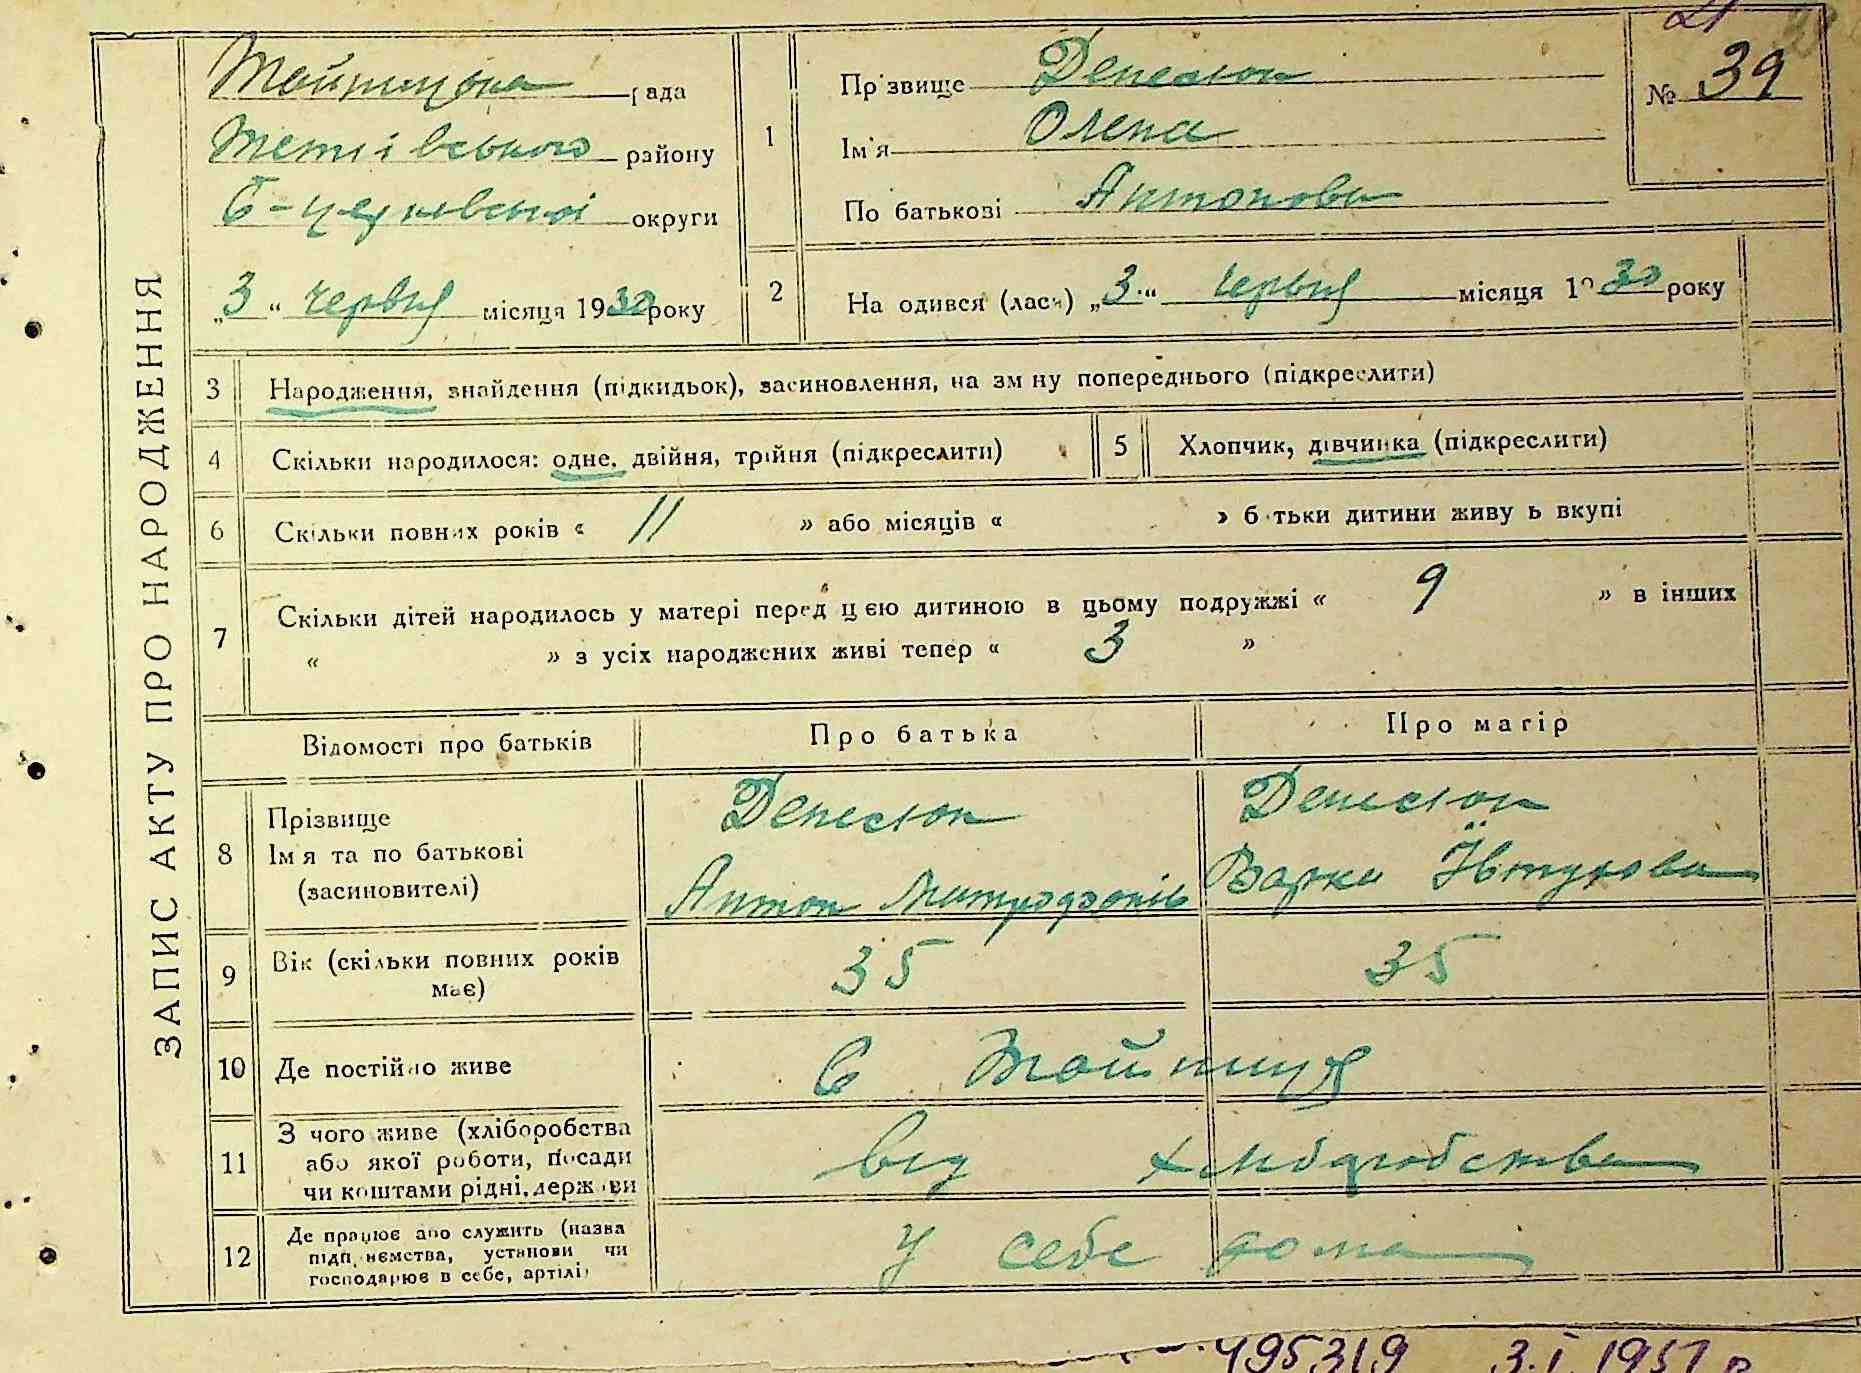 ЗАПИС АКТУ ПРО НАРОДЖЕННЯ
21
Тайницька рада
Тетіївського району
Б-церківської округи
„3“ червня місяця 1930 року
1
Прізвище Денесюк
Ім'я Олена
По батькові Антонова
№ 39
2
На одився (лася) „3“ червня місяця 1930 року
3 Народження, знайдення (підкидьок), засиновлення, на зм ну попереднього (підкреслити)
4 Скільки народилося: одне, двійня, трійня (підкреслити)
5 Хлопчик, дівчинка (підкреслити)
6 Скільки повних років « 11 » або місяців « » б тьки дитини живу ь вкупі
7 Скільки дітей народилось у матері перед цією дитиною в цьому подружжі « 9 » в інших
« » з усіх народжених живі тепер « 3 »
Відомості про батьків Про батька Про матір
8 Прізвище Ім'я та по батькові (засиновителі)
Денесюк Денесюк
Антон Митрофонів Варка Ївтухова
9 Вік (скільки повних років має) 35 35
10 Де постійно живе С Тайниця
11 З чого живе (хліборобства
або якої роботи, посади
чи коштами рідні, держави
від хліборобства
12 Де працює або служить (назва
підп иємства, установи чи
господарює в себе, артілі)
у себе дома
495319 3.I.1951 р